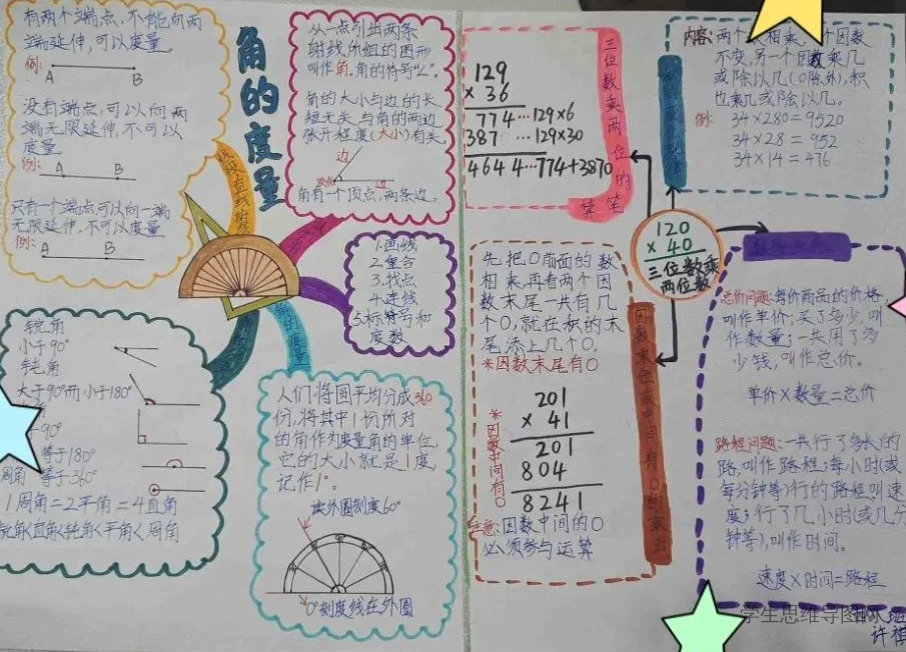 角的度量
有两个端点,不能向两
端延伸,可以度量。
例:
A B
没有端点,可以向两
端无限延伸,不可以
度量
例: A B
只有一个端点可以向一端
无限延伸,不可以度量
例: A B
从一点引出两条
射线所组的图形
叫作角,角的符号"∠"。
角的大小与边的长
短无关,与角的两边
张开程度(大小)有关
边
边
角有一个顶点,两条边。
1.画线
2.重合
3.找点
4.连线
5.标符号和
度数
锐角
小于90°
钝角
大于90°而小于180°
=90°
等于180°
周角 等于360°
1周角=2平角=4直角
锐角<直角<钝角<平角<周角
人们将圆平均分成360
份,将其中1份所对
的角作为度量角的单位,
它的大小就是1度,
记作1°。
读外圈刻度60°
0°刻度线在外圈
三位数乘两位的笔算
129
× 36
774…129×6
387 …129×30
4644…774+3870
内容:两个
相乘,
个因数
不变,另一个因数乘几
或除以几(0除外),积
也乘几或除以几。
例: 34×280=9520
34×28=952
34×14=476
120
× 40
三位数乘
两位数
先把0前面的数
相乘,再看两个因
数末尾一共有几
个0,就在积的末
尾添上几个0。
*因数末尾有0
*因数中间有0
201
× 41
201
804
8241
注意:因数中间的0
必须参与运算
总价问题:每价商品的价格
叫作单价;买了多少,叫
作数量;一共用了多
少钱,叫作总价。
单价×数量=总价
路程问题:一共行了多长的
路,叫作路程;每小时(或
每分钟等)行的路程叫速
度;行了几小时(或几分
钟等),叫作时间。
速度×时间=路程
学生思维导图
许祺